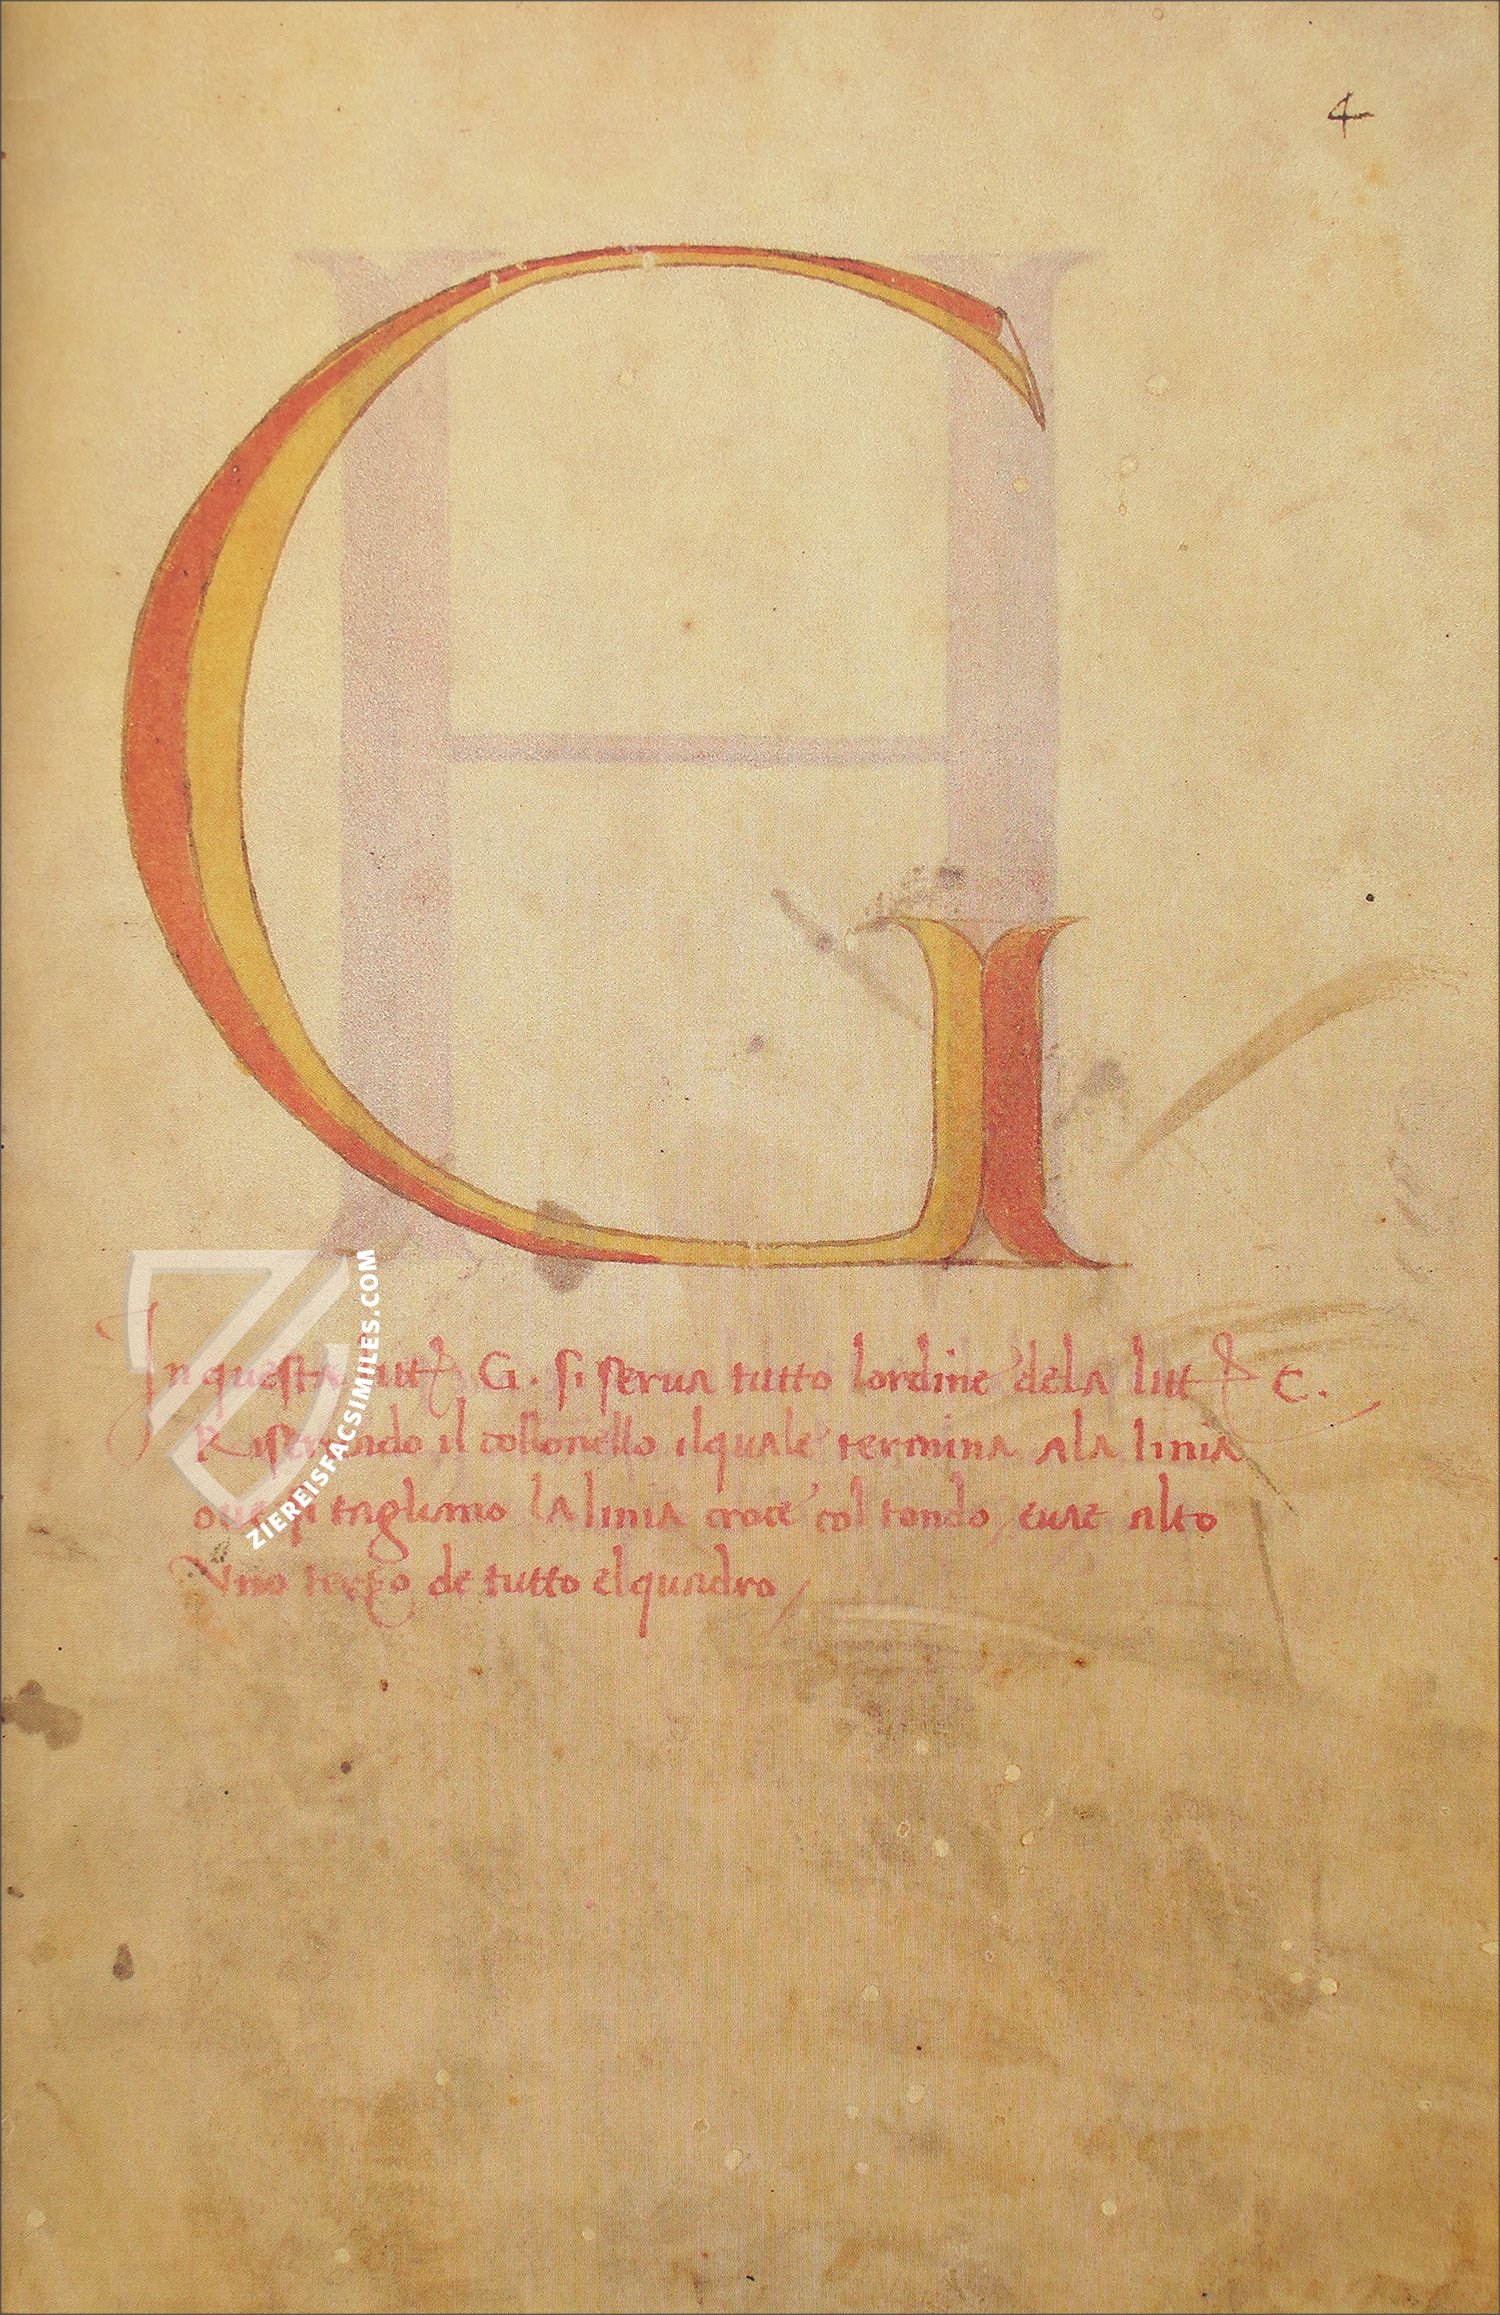 4
G
In questa litt G. si serua tutto lordine dela litt C.
Riseruando il collonello ilquale termina ala linia
oue si tagliano la linia croce col tondo, euae alto
Vno terzo de tutto elquadro
ZIEREISFACSIMILES.COM